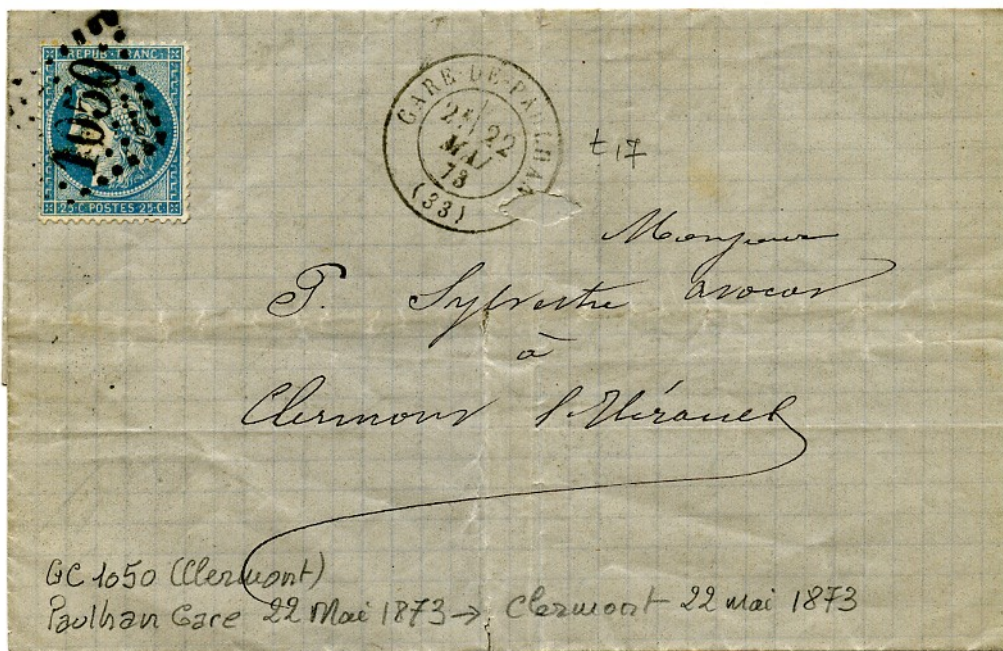 REPUB·FRANC·
1050
25·C·POSTES·25·C·
GARE·DE·PAULHAN
2E/ 22
MAI
73
(33)
t 17
Monsieur
P. Sylvestre avocat
à
Clermont l'Hérault
GC 1050 (Clermont)
Paulhan Gare 22 Mai 1873 → Clermont 22 mai 1873